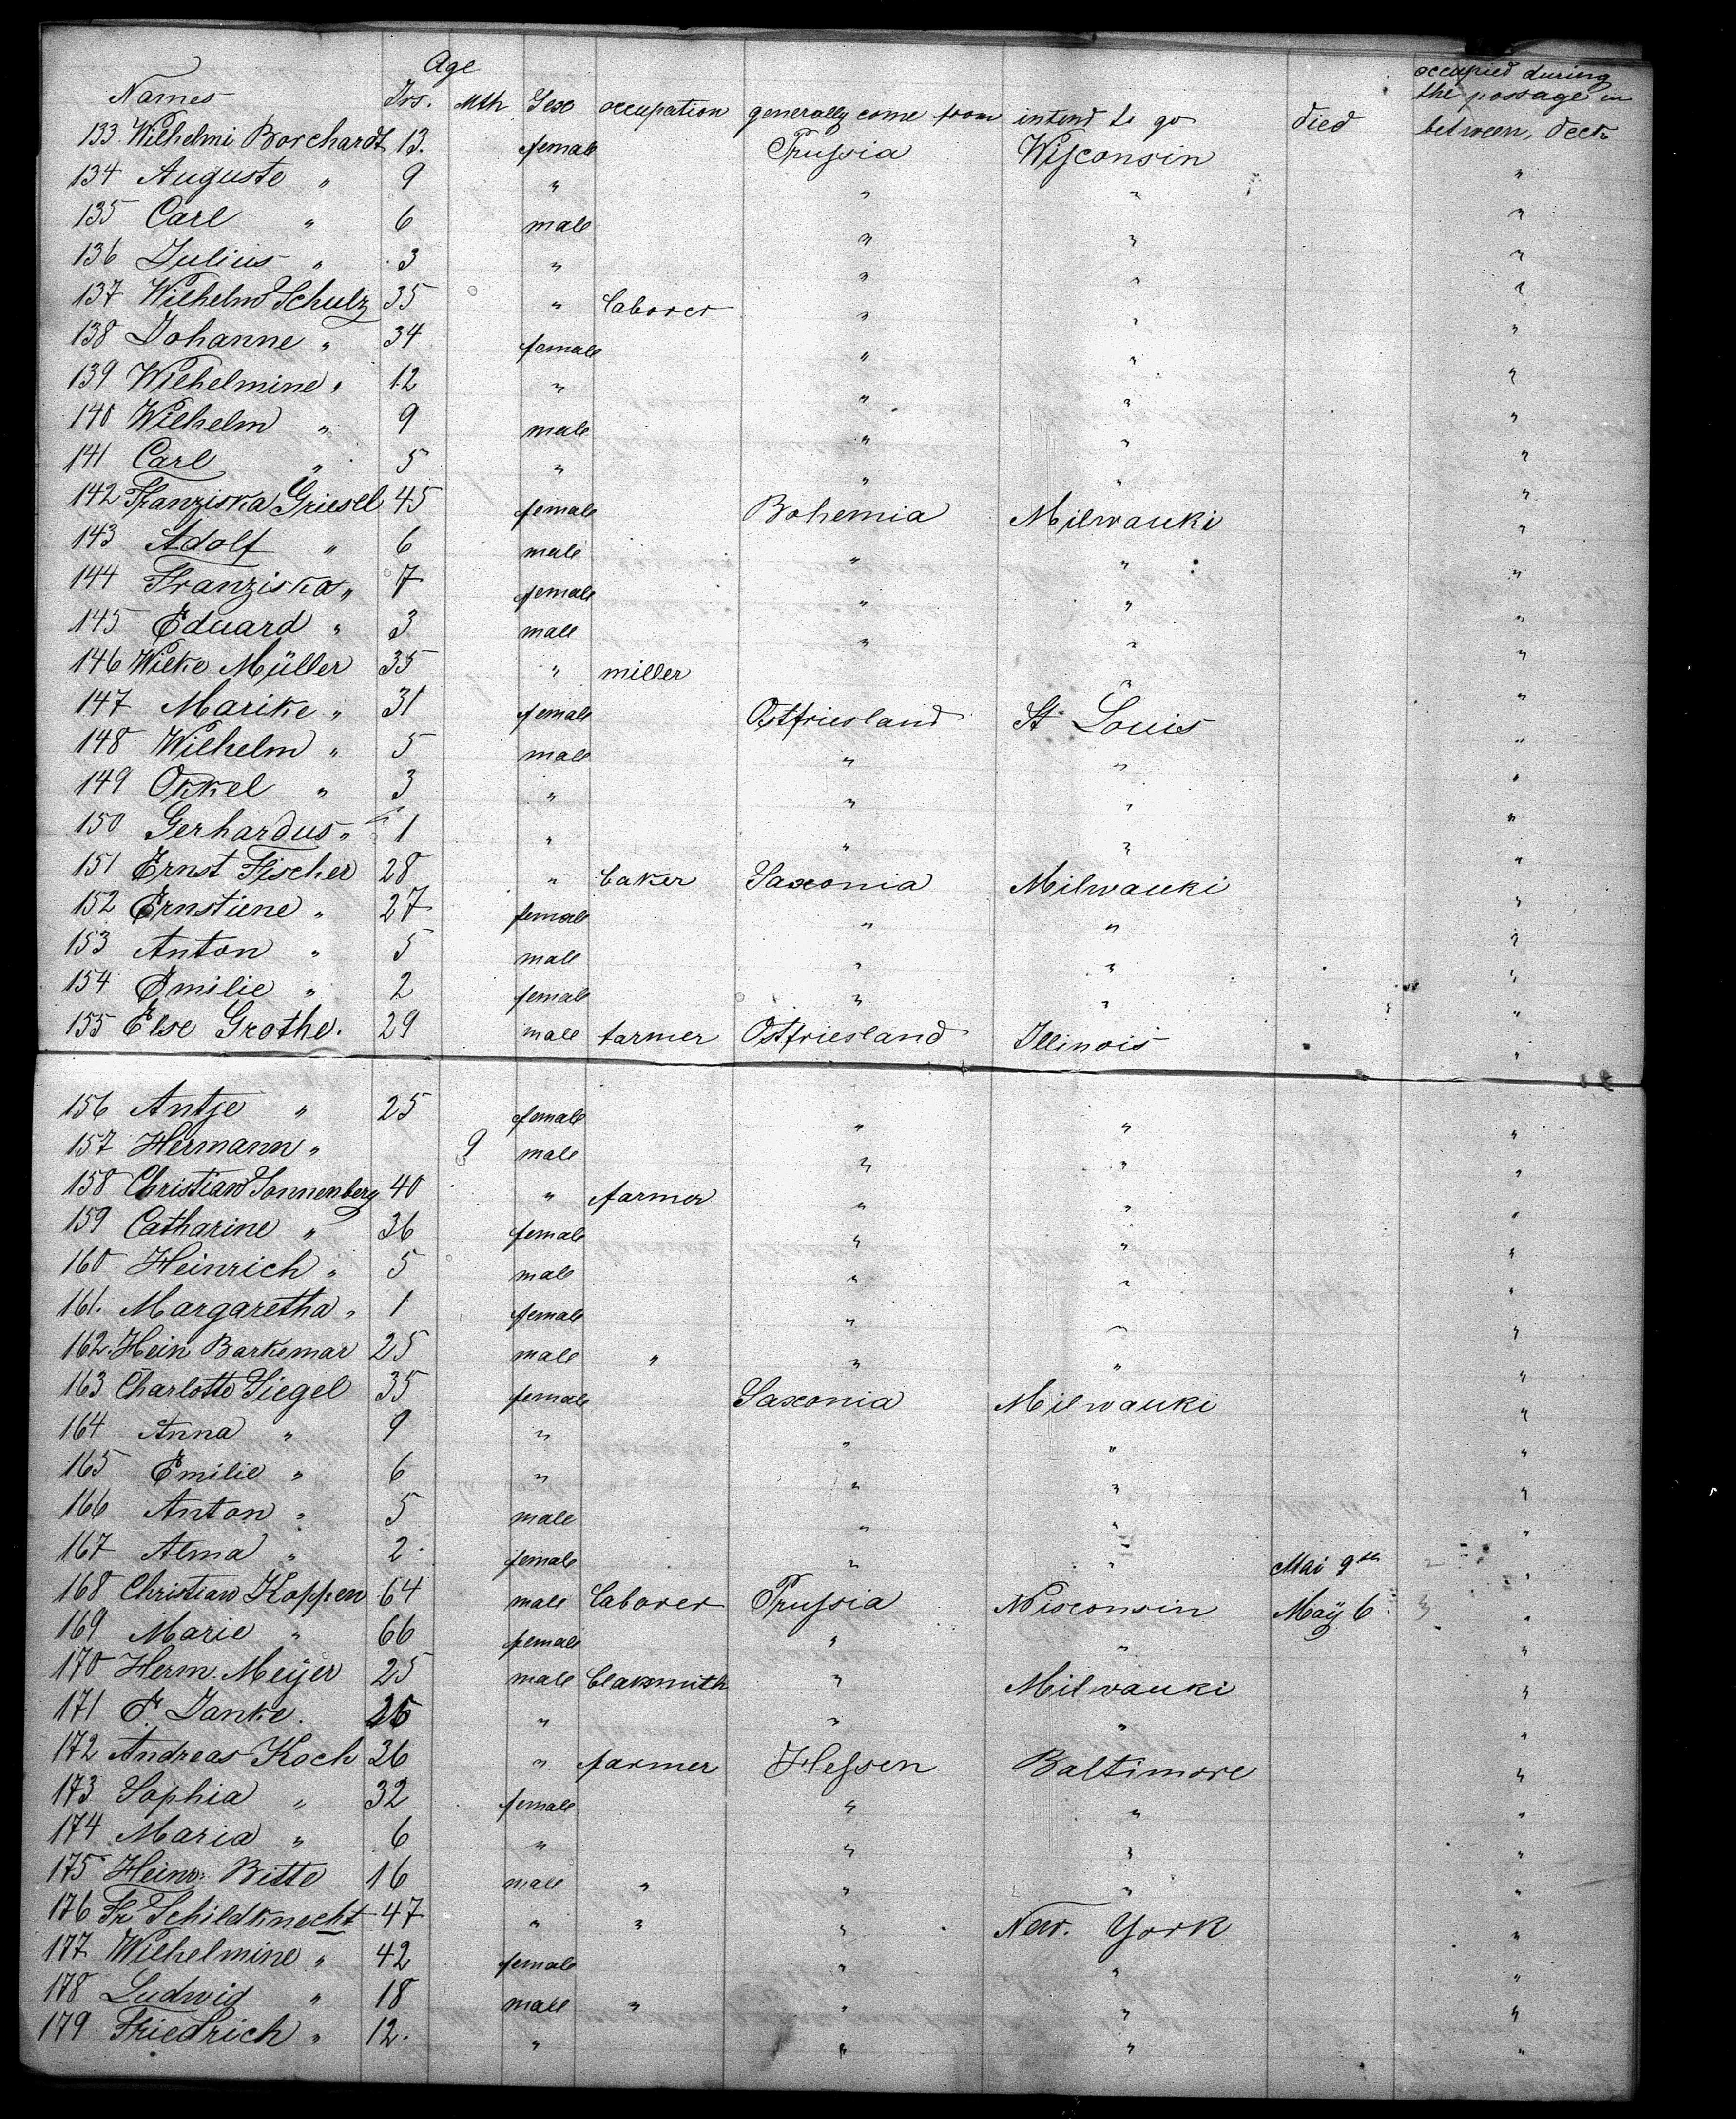 Names Age Yrs. Mth Sex occupation generally come from intend to go died occupied during the passage in between deck
133. Wilhelmi Borchardt 13. female Prussia Wisconsin "
134 Auguste " 9 " " " "
135 Carl " 6 male " " "
136 Julius " 3 " " " "
137 Wilhelm Schulz 35 " laborer " " "
138 Johanne " 34 female " " "
139 Wilhelmine " 12 " " " "
140 Wilhelm " 9 male " " "
141 Carl " 5 " " " "
142 Franziska Griesel 45 female Bohemia Milwauki "
143 Adolf " 6 male " " "
144 Franziska " 7 female " " "
145 Eduard " 3 male " " "
146 Wilke Müller 35 " miller "
147 Marike " 31 female Ostfriesland St. Louis "
148 Wilhelm " 5 male " " "
149 Okkel " 3 " " " "
150 Gerhardus " 1 " " " "
151 Ernst Fischer 28 " baker Saxonia Milwauki "
152 Ernstiene " 27 female " " "
153 Anton " 5 male " " "
154 Emilie " 2 female " " "
155 Else Grothe. 29 male farmer Ostfriesland Illinois "
156 Antje " 25 female " " "
157 Hermann " 9 male " " "
158 Christian Sonnenberg 40 " farmer " " "
159 Catharine " 36 female " " "
160 Heinrich " 5 male " " "
161. Margaretha " 1 female " " "
162. Hein Barkemar 25 male " " " "
163 Charlotte Siegel 35 female Saxonia Milwauki "
164 Anna " 9 " " " "
165 Emilie " 6 " " " "
166 Anton " 5 male " " "
167 Alma " 2 female " " Mai 9th "
168 Christian Koppen 64 male laborer Prussia Wisconsin Maÿ 6. "
169 Marie " 66 female " " "
170 Herm. Meijer 25 male blaksmith " Milwauki "
171 F Janke. 25 " " " "
172 Andreas Koch 36 " farmer Hessen Baltimore "
173 Sophia " 32 female " " "
174 Maria " 6 " " " "
175 Heinr. Bitte 16 male " " " "
176 Fr Schildknecht 47 " " " New. York "
177 Wilhelmine " 42 female " " "
178 Ludwig " 18 male " " " "
179 Friedrich " 12. " " " "